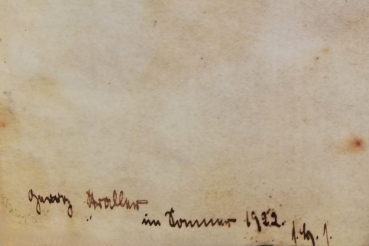 Georg Kraller
im Sommer 1922.